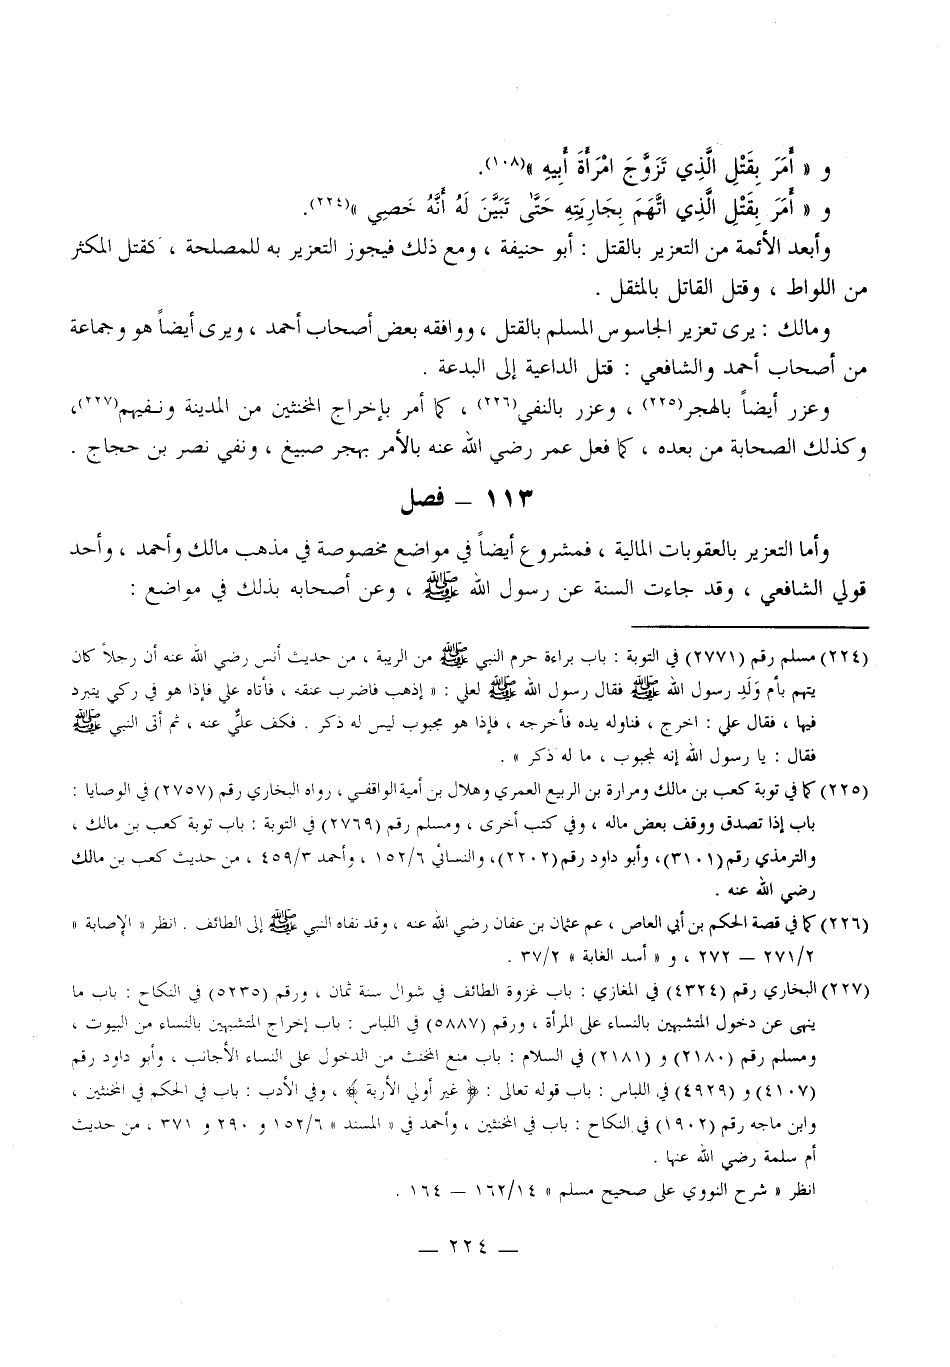 و « أَمَرَ بِقَتْلِ الَّذِي تَزَوَّجَ امْرَأَةَ أَبِيهِ »(١٠٨).
و « أَمَرَ بِقَتْلِ الَّذِي اتَّهَمَ بِجَارِيَتِهِ حَتَّى تَبَيَّنَ لَهُ أَنَّهُ خَصِي »(٢٢٤).
وأبعد الأئمة من التعزير بالقتل : أبو حنيفة ، ومع ذلك فيجوز التعزير به للمصلحة ، كقتل المكثر
من اللواط ، وقتل القاتل بالمثقل .
ومالك : يرى تعزير الجاسوس المسلم بالقتل ، ووافقه بعض أصحاب أحمد ، ويرى أيضاً هو وجماعة
من أصحاب أحمد والشافعي : قتل الداعية إلى البدعة .
وعزر أيضاً بالهجر(٢٢٥) ، وعزر بالنفي(٢٢٦) ، كما أمر بإخراج المخنثين من المدينة ونفيهم(٢٢٧)،
وكذلك الصحابة من بعده ، كما فعل عمر رضي الله عنه بالأمر بهجر صبيغ ، ونفي نصر بن حجاج .
١١٣ – فصل
وأما التعزير بالعقوبات المالية ، فمشروع أيضاً في مواضع مخصوصة في مذهب مالك وأحمد ، وأحد
قولي الشافعي ، وقد جاءت السنة عن رسول الله ﷺ ، وعن أصحابه بذلك في مواضع :
(٢٢٤) مسلم رقم (٢٧٧١) في التوبة : باب براءة حرم النبي ﷺ من الريبة ، من حديث أنس رضي الله عنه أن رجلاً كان
يتهم بأم وَلَدِ رسول الله ﷺ فقال رسول الله ﷺ لعلي : « إذهب فاضرب عنقه ، فأتاه علي فإذا هو في ركي يتبرد
فيها ، فقال علي : اخرج ، فناوله يده فأخرجه ، فإذا هو مجبوب ليس له ذكر . فكف عليٌّ عنه ، ثم أتى النبي ﷺ
فقال : يا رسول الله إنه لمجبوب ، ما له ذكر » .
(٢٢٥) كما في توبة كعب بن مالك ومرارة بن الربيع العمري وهلال بن أمية الواقفي ، رواه البخاري رقم (٢٧٥٧) في الوصايا :
باب إذا تصدق ووقف بعض ماله ، وفي كتب أخرى ، ومسلم رقم (٢٧٦٩) في التوبة : باب توبة كعب بن مالك ،
والترمذي رقم (٣١٠١)، وأبو داود رقم (٢٢٠٢)، والنسائي ١٥٢/٦ ، وأحمد ٤٥٩/٣ ، من حديث كعب بن مالك
رضي الله عنه .
(٢٢٦) كما في قصة الحكم بن أبي العاص ، عم عثمان بن عفان رضي الله عنه ، وقد نفاه النبي ﷺ إلى الطائف . انظر « الإصابة »
٢٧١/٢ – ٢٧٢ ، و « أسد الغابة » ٣٧/٢ .
(٢٢٧) البخاري رقم (٤٣٢٤) في المغازي : باب غزوة الطائف في شوال سنة ثمان ، ورقم (٥٢٣٥) في النكاح : باب ما
ينهى عن دخول المتشبهين بالنساء على المرأة ، ورقم (٥٨٨٧) في اللباس : باب إخراج المتشبهين بالنساء من البيوت ،
ومسلم رقم (٢١٨٠) و (٢١٨١) في السلام : باب منع المخنث من الدخول على النساء الأجانب ، وأبو داود رقم
(٤١٠٧) و (٤٩٢٩) في اللباس : باب قوله تعالى : ﴿ غير أولي الأربة ﴾ ، وفي الأدب : باب في الحكم في المخنثين ،
وابن ماجه رقم (١٩٠٢) في النكاح : باب في المخنثين ، وأحمد في « المسند » ١٥٢/٦ و ٢٩٠ و ٣٧١ ، من حديث
أم سلمة رضي الله عنها .
انظر « شرح النووي على صحيح مسلم » ١٦٢/١٤ – ١٦٤ .
– ٢٢٤ –